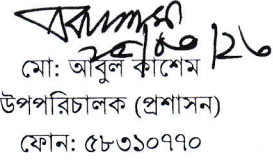 ২৫/০৩/২৬
মো: আবুল কাশেম
উপপরিচালক (প্রশাসন)
ফোন: ৫৮৩১০৭৭০